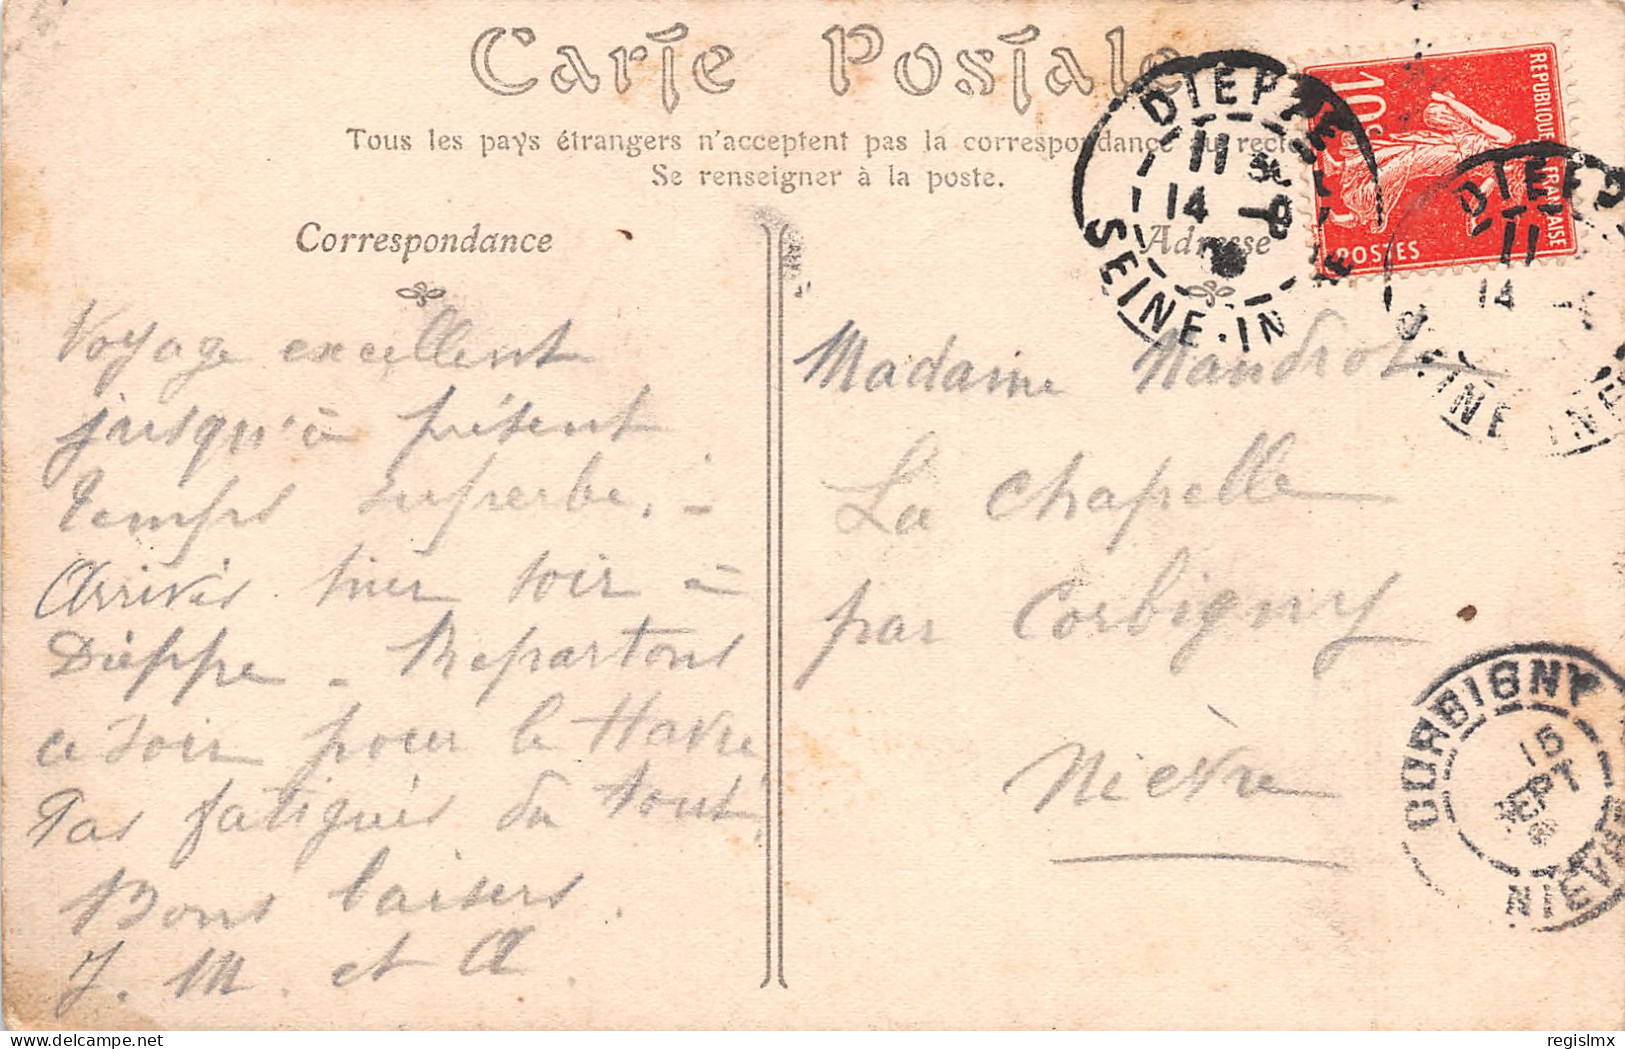 Carte Postale
Tous les pays étrangers n'acceptent pas la correspondance au recto
Se renseigner à la poste.
Correspondance
Adresse
Voyage excellent
jusqu'à présent
temps superbe. -
Arrivés hier soir à
Dieppe - Repartons
ce soir pour le Havre
Pas fatigués du tout.
Bons baisers.
J. M. et A.
Madame Naudrot
La Chapelle
par Corbigny
Nièvre
REPUBLIQUE FRANÇAISE
10c
POSTES
DIEPPE
11
14 -9
SEINE-IN
DIEPP
11
14
SEINE
CORBIGNY
15
SEPT
NIEVRE
regislmx